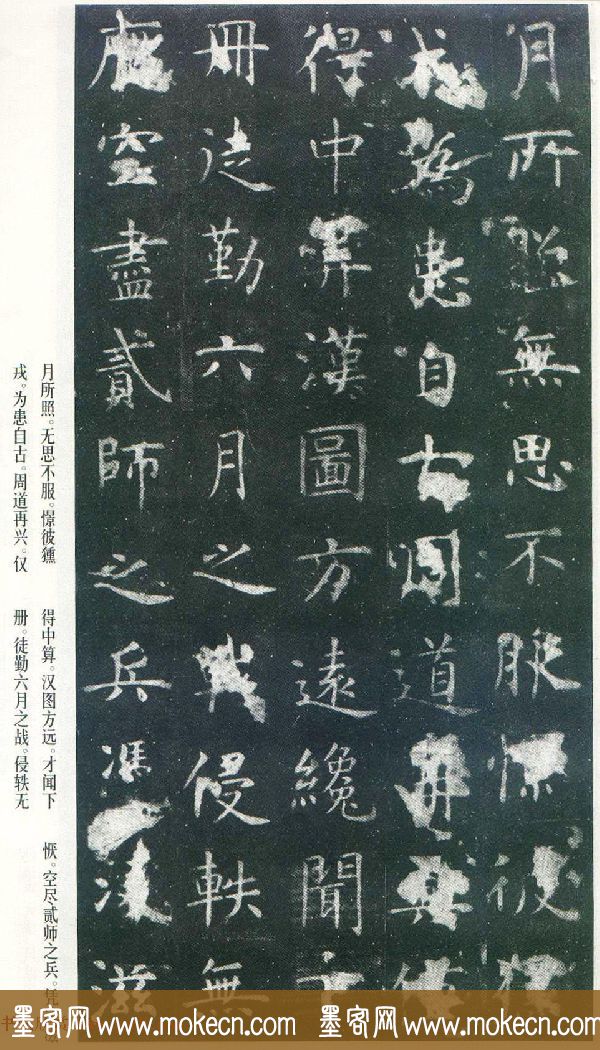 月所照無思不服憬彼獯
戎為患自古周道再興僅
得中算漢圖方遠纔聞下
冊徒勤六月之戰侵軼無
空盡貳師之兵馮凌滋
月所照。无思不服。憬彼獯
戎。为患自古。周道再兴。仅
得中算。汉图方远。才闻下
册。徒勤六月之战。侵轶无
恹。空尽贰师之兵。
墨客网 www.mokecn.com 墨客网 www.mokecn.com